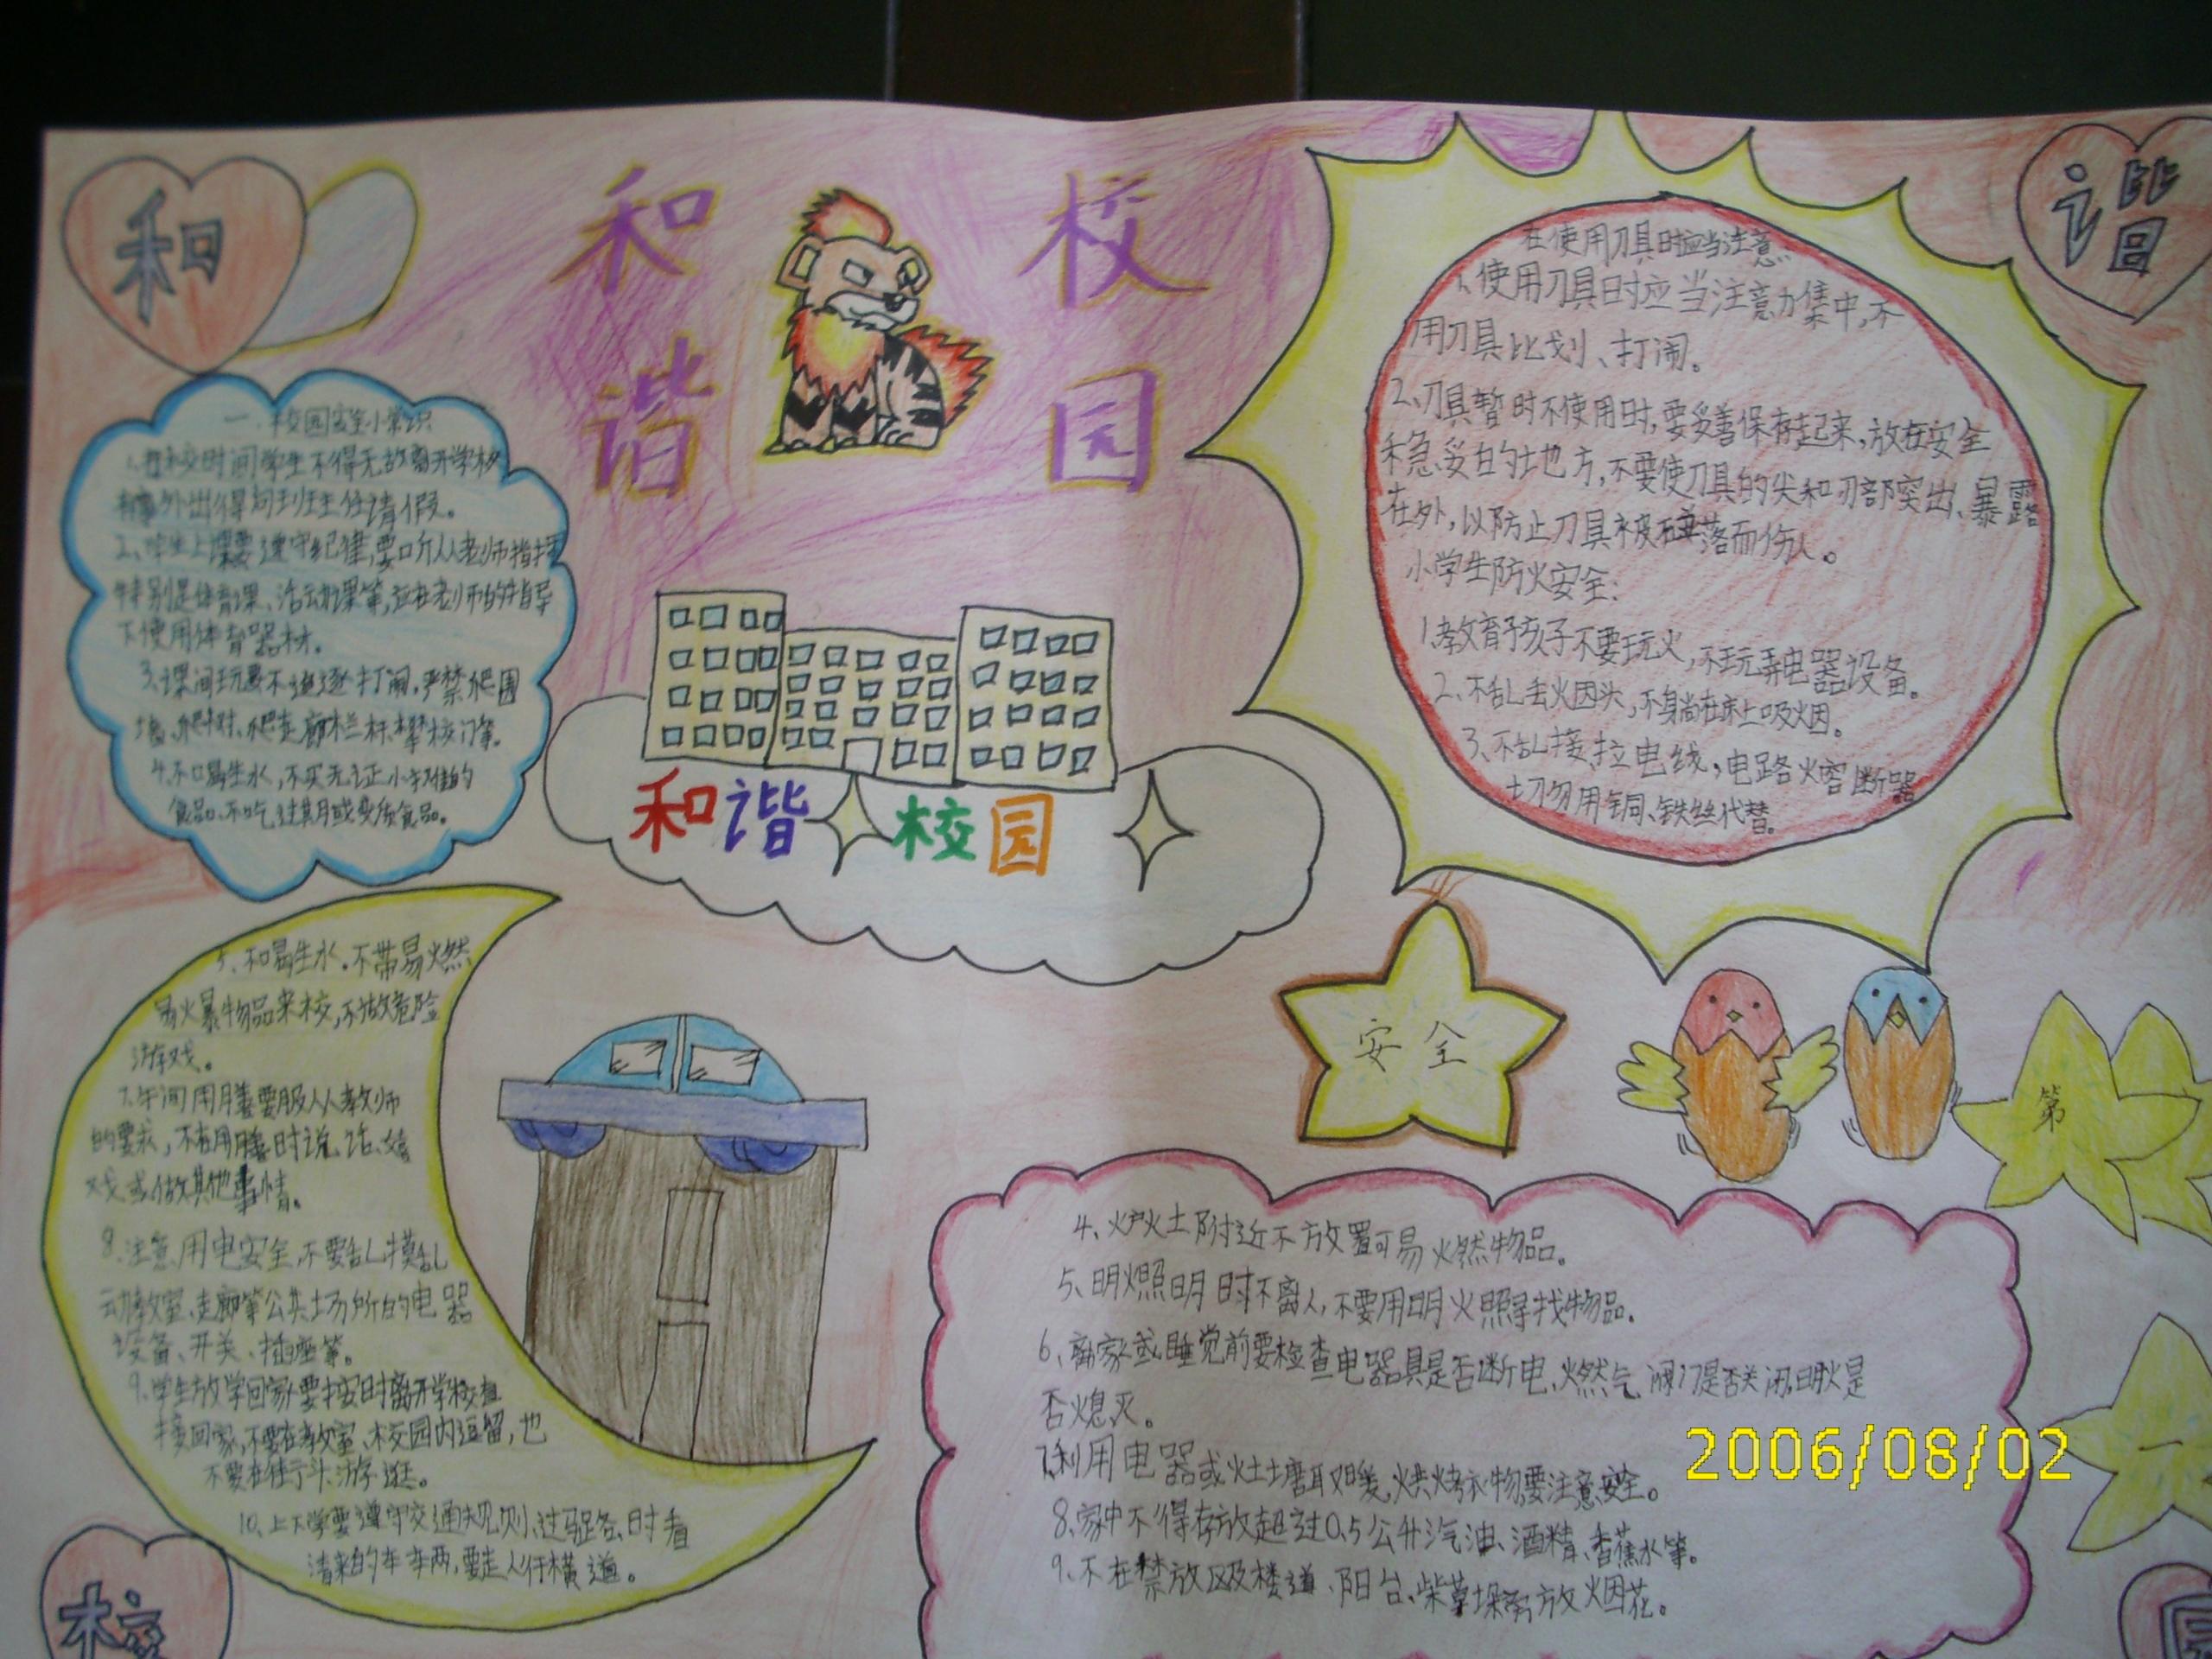 和
谐
和
谐
校
园
一、校园安全小常识
1.在校时间学生不得无故离开学校
有事外出得向班主任请假。
2、学生上课要遵守纪律,要听从老师指挥
特别是体育课、活动课等,应在老师的指导
下使用体育器材。
3、课间玩耍不追逐打闹,严禁爬围
墙、爬树、爬走廊栏杆、攀校门等。
4.不喝生水,不买无证小摊的
食品、不吃过期或变质食品。
和谐校园
在使用刀具时应当注意
1、使用刀具时应当注意力集中,不
用刀具比划、打闹。
2、刀具暂时不使用时,要妥善保存起来,放在安全
稳妥的地方,不要使刀具的尖和刃部突出、暴露
在外,以防止刀具被碰落而伤人。
小学生防火安全:
1.教育孩子不要玩火,不玩弄电器设备。
2、不乱丢火因头,不身尚在床上吸烟。
3、不乱接拉电线,电路火容断器
切勿用铜、铁丝代替。
5、和喝生水。不带易燃、
易火暴物品来校,不做危险
游戏。
7.午间用膳要服从教师
的要求,不在用膳时说话、嬉
戏或做其他事情。
8.注意用电安全,不要乱摸乱
动教室、走廊等公共场所的电器
设备、开关、插座等。
9.学生放学回家要按时离开学校直
接回家,不要在教室、校园内逗留,也
不要在街头游逛。
10、上下学要遵守交通规则、过马路时看
清来的车车两,要走人行横道。
安全
第
一
4、火户火土附近不放置可易燃物品。
5、明火照明时不离人,不要用明火照寻找物品。
6、离家或睡觉前要检查电器具是否断电,燃气阀门是否关闭,明火是
否熄灭。
7.利用电器或灶塘取暖,烘烤衣物,要注意安全。
8、家中不得存放超过0.5公升汽油、酒精、香蕉水等。
9、不在禁放区及楼道、阳台、柴草垛旁放火因花。
2006/08/02
校